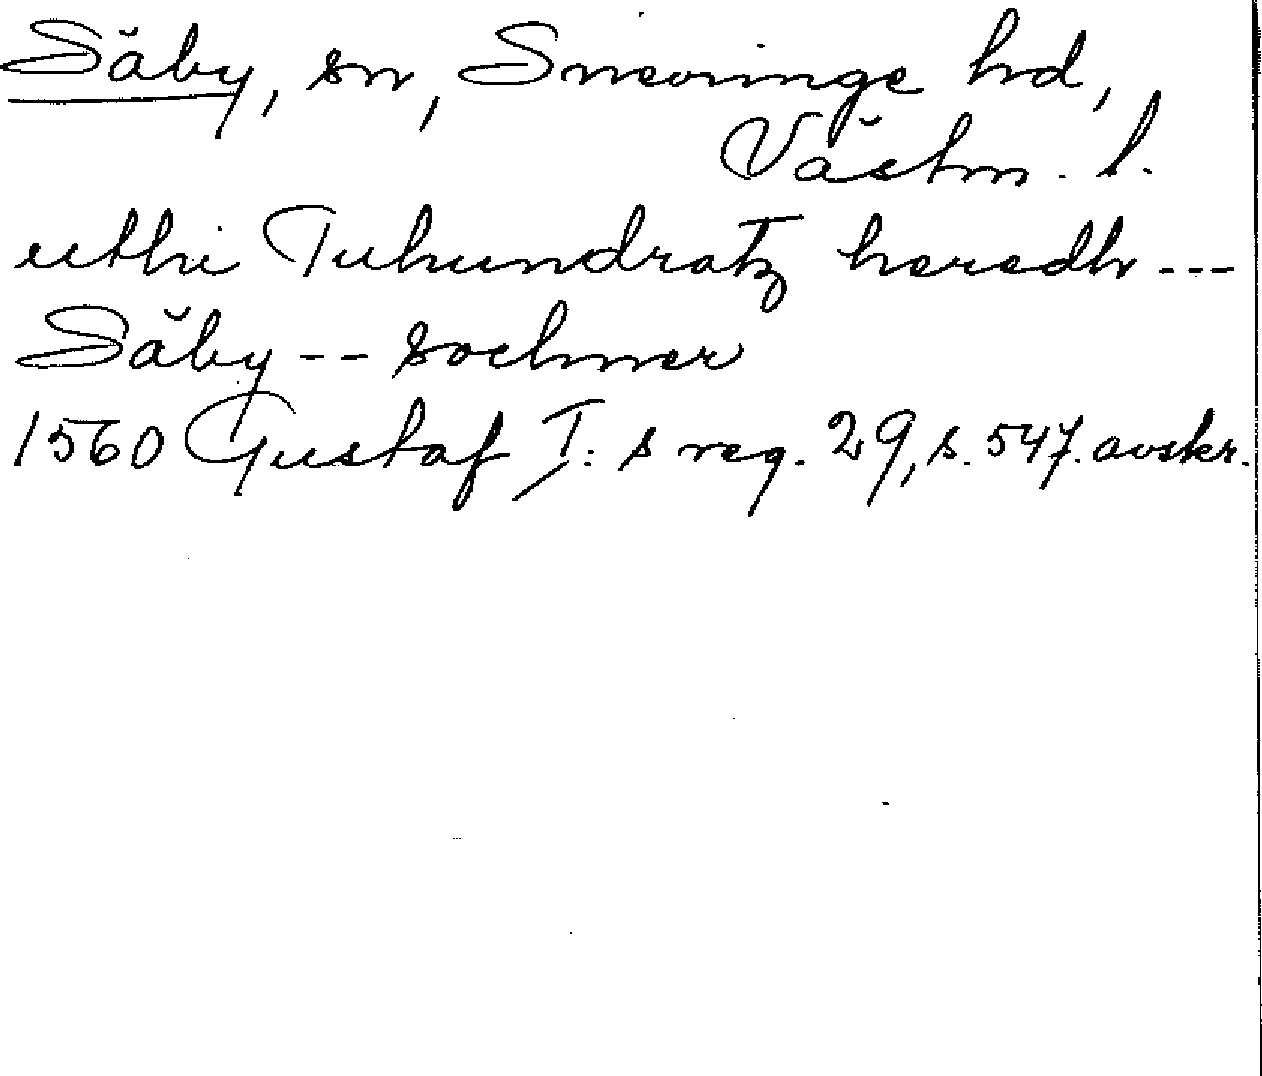 Säby, sn, Snevringe hd,
Västm. l.
uthi Tuhundratz heredh ---
Säby -- sochner
1560 Gustaf I: s reg. 29, s. 547. avskr.